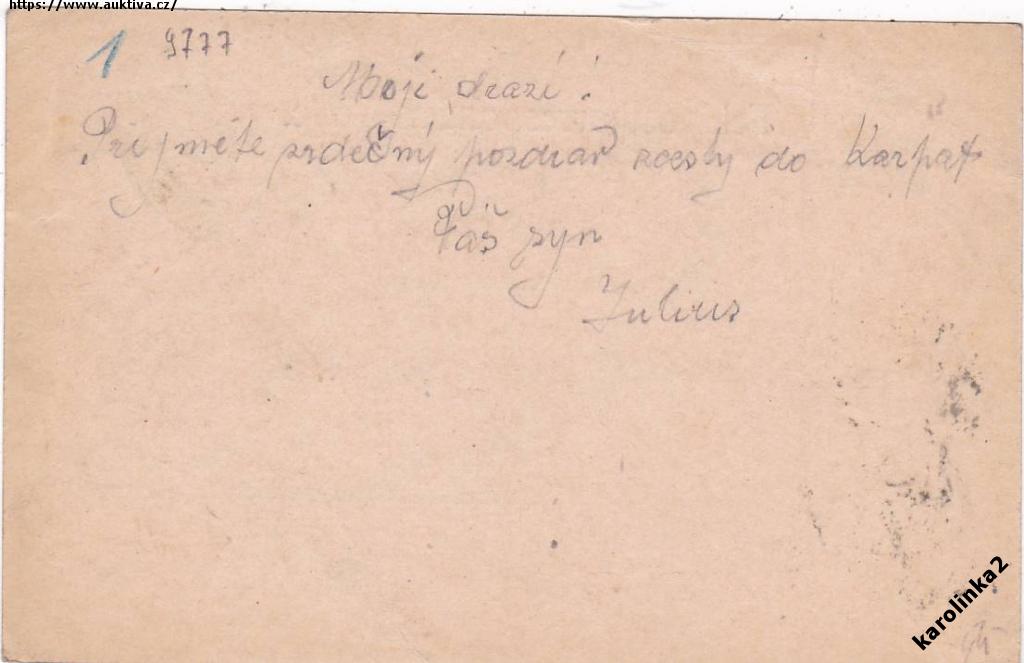 https://www.auktiva.cz/
1 9777
Moji drazí!
Přijměte srdečný pozdrav zcesty do Karpat
Váš syn
Julius
karolinka2